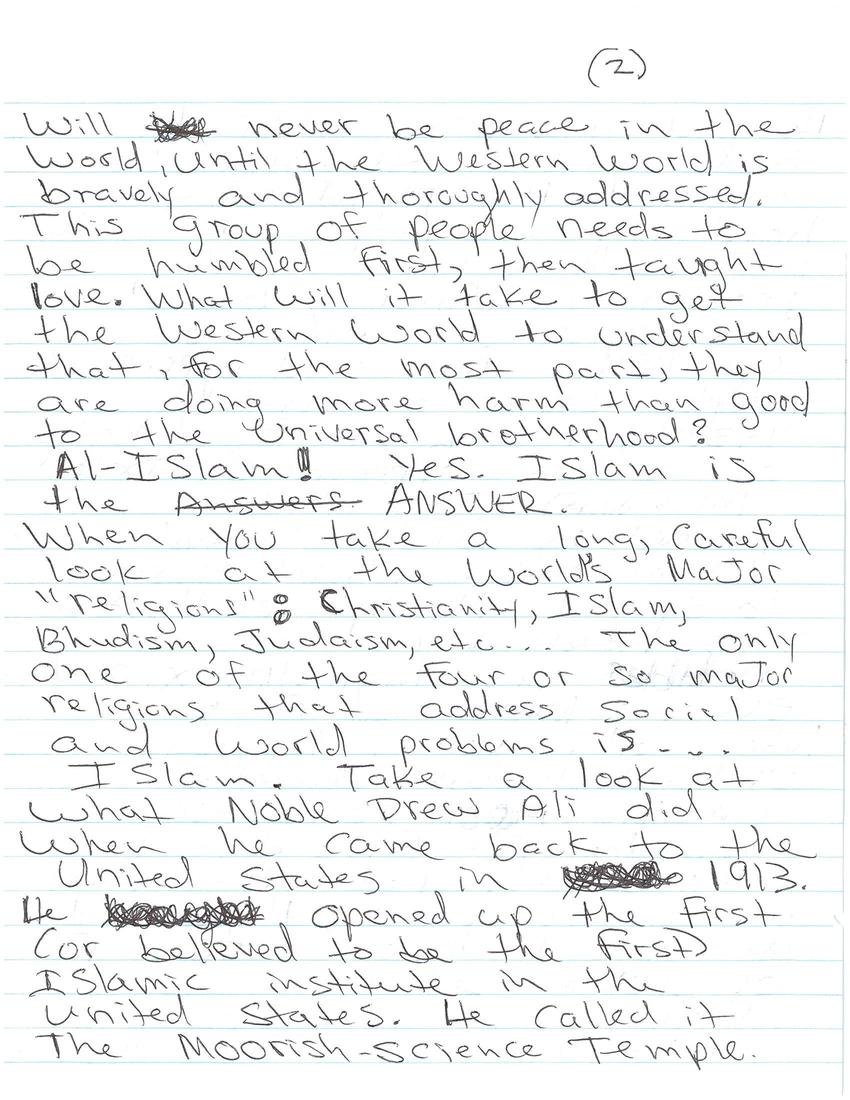 (2)
Will never be peace in the
World, Until the Western World is
bravely and thoroughly addressed.
This group of people needs to
be humbled first, then taught
love. What will it take to get
the Western World to understand
that, for the most part, they
are doing more harm than good
to the Universal brotherhood?
Al-ISlam! Yes. ISlam is
the Answers ANSWER.
When you take a long, careful
look at the World's Major
"religions": Christianity, ISlam,
Bhudism, Judaism, etc.... The only
one of the four or so major
religions that address Social
and World probloms is....
ISlam. Take a look at
what Noble Drew Ali did
When he came back to the
United States in 1913.
He opened up the first
(or believed to be the first)
ISlamic institute in the
United States. He called it
The Moorish-Science Temple.